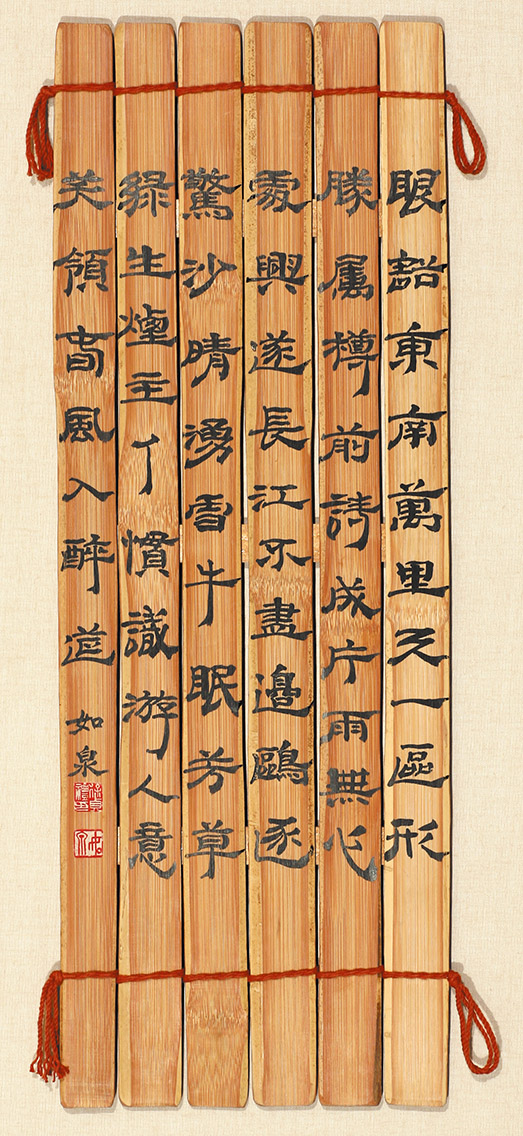 眼豁東南萬里天一區形
勝属樽前詩成片雨無心
處興遂長江不盡邊鷗逐
驚沙晴湧雪牛眠芳草
綠生煙主人慣識游人意
笑領旾風入醉筵
如泉